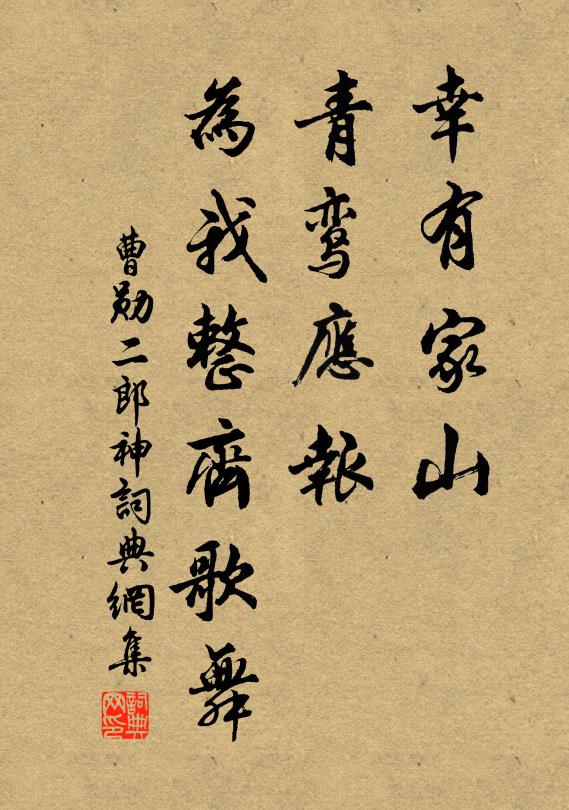 幸有家山
青鸾應報
為我整齊歌舞
曹勛二郎神詞典網集
詞典网印